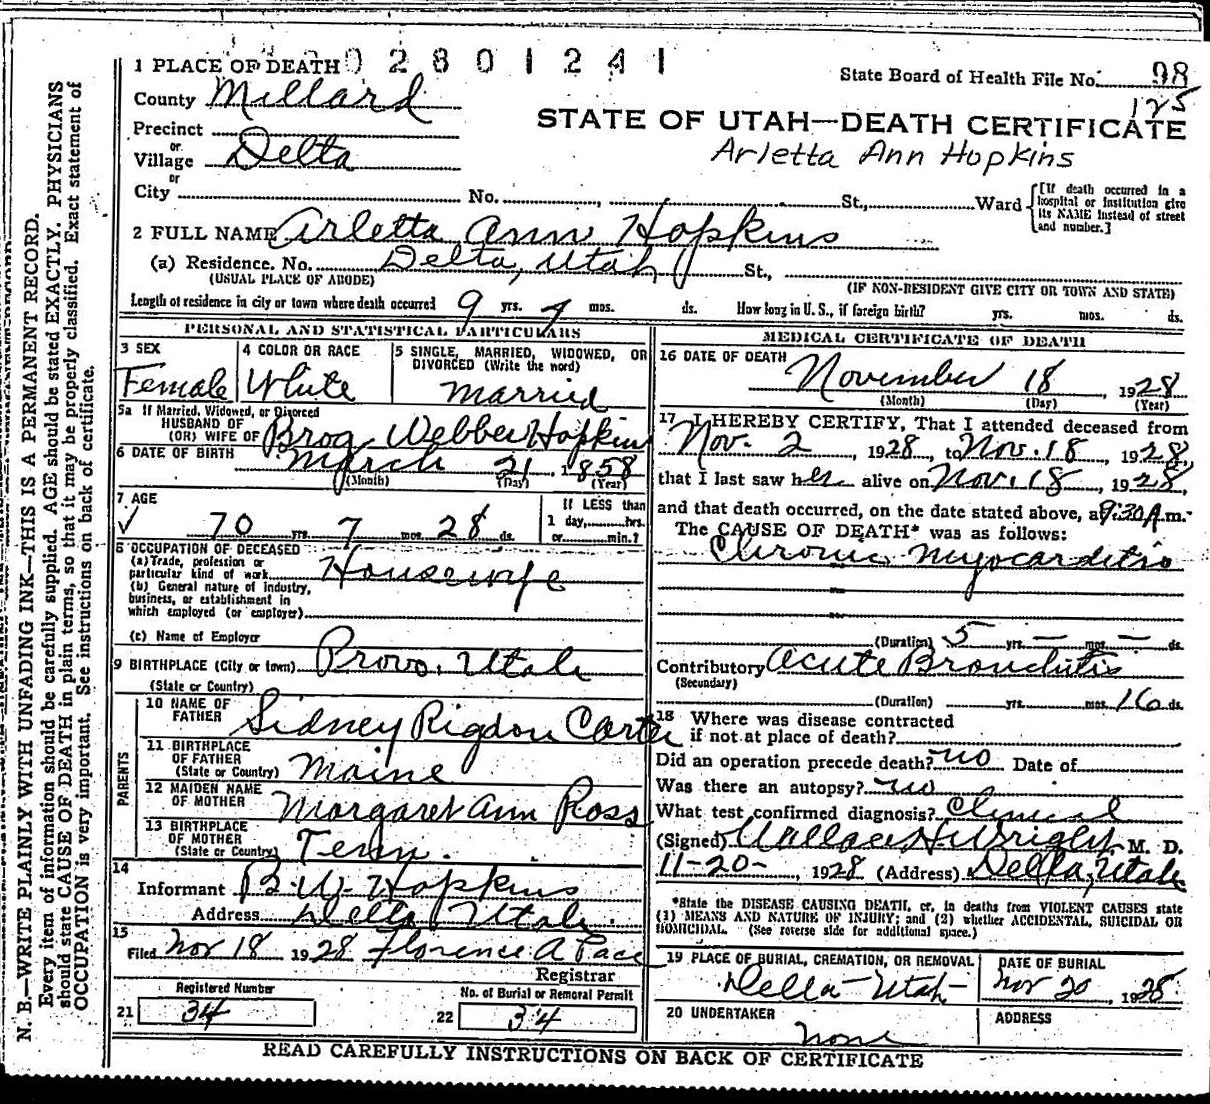 0 2 8 0 1 2 4 1
1 PLACE OF DEATH
State Board of Health File No. 98
125
County Millard
STATE OF UTAH—DEATH CERTIFICATE
Precinct
or
Village Delta
Arletta Ann Hopkins
or
City No. St., Ward
[If death occurred in a hospital or institution give its NAME instead of street and number.]
2 FULL NAME Arletta Ann Hopkins
(a) Residence. No. Delta, Utah St.,
(USUAL PLACE OF ABODE) (IF NON-RESIDENT GIVE CITY OR TOWN AND STATE)
Length of residence in city or town where death occurred 9 yrs. 7 mos. ds. How long in U. S., if foreign birth? yrs. mos. ds.
PERSONAL AND STATISTICAL PARTICULARS
3 SEX Female
4 COLOR OR RACE White
5 SINGLE, MARRIED, WIDOWED, OR DIVORCED (Write the word)
Married
5a If Married, Widowed, or Divorced
HUSBAND OF
(OR) WIFE OF Brog Webber Hopkins
6 DATE OF BIRTH March 21 1858
(Month) (Day) (Year)
7 AGE
70 yrs. 7 mos. 28 ds.
If LESS than
1 day, hrs.
or min.?
8 OCCUPATION OF DECEASED
(a) Trade, profession or
particular kind of work Housewife
(b) General nature of industry,
business, or establishment in
which employed (or employer)
(c) Name of Employer
9 BIRTHPLACE (City or town) Provo, Utah
(State or Country)
PARENTS
10 NAME OF FATHER Sidney Rigdon Carter
11 BIRTHPLACE OF FATHER
(State or Country) Maine
12 MAIDEN NAME OF MOTHER Margaret Ann Ross
13 BIRTHPLACE OF MOTHER
(State or Country) Tenn.
14
Informant B. W. Hopkins
Address Delta Utah.
15
Filed Nov 18 1928 Florence A Pace
Registrar
Registered Number
21 34
No. of Burial or Removal Permit
22 34
MEDICAL CERTIFICATE OF DEATH
16 DATE OF DEATH
November 18, 1928
(Month) (Day) (Year)
17 I HEREBY CERTIFY, That I attended deceased from
Nov. 2, 1928, to Nov. 18 1928,
that I last saw her alive on Nov. 18, 1928,
and that death occurred, on the date stated above, at 9:30 A.m.
The CAUSE OF DEATH* was as follows:
Chronic Myocarditis
(Duration) 5 yrs. — mos. — ds.
Contributory Acute Bronchitis
(Secondary)
(Duration) yrs. mos. 16 ds.
18 Where was disease contracted
if not at place of death?
Did an operation precede death? no Date of
Was there an autopsy? no
What test confirmed diagnosis? Clinical
(Signed) Wallace H. Wright, M. D.
11-20-, 1928 (Address) Delta, Utah
*State the DISEASE CAUSING DEATH, or, in deaths from VIOLENT CAUSES state
(1) MEANS AND NATURE OF INJURY; and (2) whether ACCIDENTAL, SUICIDAL OR
HOMICIDAL. (See reverse side for additional space.)
19 PLACE OF BURIAL, CREMATION, OR REMOVAL
Delta - Utah -
DATE OF BURIAL
Nov 20, 1928
20 UNDERTAKER
none
ADDRESS
READ CAREFULLY INSTRUCTIONS ON BACK OF CERTIFICATE
N. B.—WRITE PLAINLY WITH UNFADING INK—THIS IS A PERMANENT RECORD.
Every item of information should be carefully supplied. AGE should be stated EXACTLY. PHYSICIANS
should state CAUSE OF DEATH in plain terms, so that it may be properly classified. Exact statement of
OCCUPATION is very important. See instructions on back of certificate.